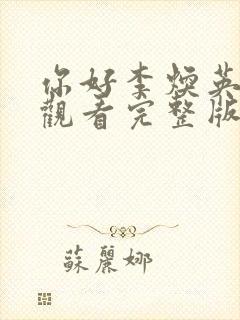 你好李煥英
觀看完整版
蘇麗娜